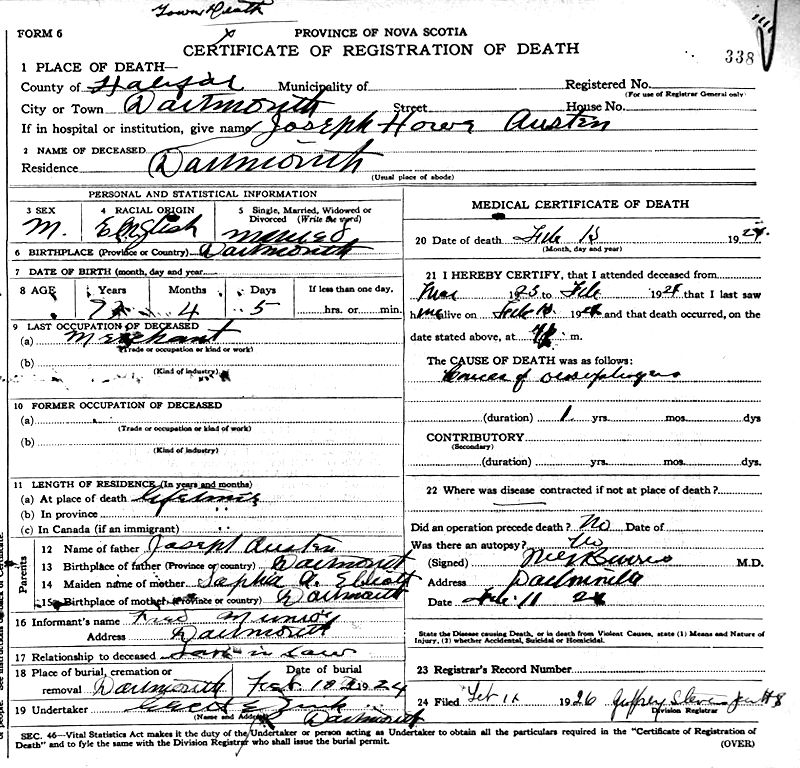 Town Death
FORM 6
PROVINCE OF NOVA SCOTIA
CERTIFICATE OF REGISTRATION OF DEATH
338
1 PLACE OF DEATH—
County of Halifax Municipality of
Registered No.
(For use of Registrar General only)
City or Town Dartmouth Street House No.
If in hospital or institution, give name Joseph Howe Austen
2 NAME OF DECEASED
Residence Dartmouth
(Usual place of abode)
PERSONAL AND STATISTICAL INFORMATION
3 SEX 4 RACIAL ORIGIN 5 Single, Married, Widowed or Divorced (Write the word)
M. English Married
6 BIRTHPLACE (Province or Country) Dartmouth
7 DATE OF BIRTH (month, day and year)
8 AGE Years Months Days If less than one day.
4 5 hrs. or min.
9 LAST OCCUPATION OF DECEASED
(a) Merchant
(Trade or occupation or kind or work)
(b)
(Kind of industry)
10 FORMER OCCUPATION OF DECEASED
(a)
(Trade or occupation or kind of work)
(b)
(Kind of industry)
11 LENGTH OF RESIDENCE (In years and months)
(a) At place of death lifetime
(b) In province "
(c) In Canada (if an immigrant) "
Parents
12 Name of father Joseph Austen
13 Birthplace of father (Province or country) Dartmouth
14 Maiden name of mother Sophia A. Elliott
15 Birthplace of mother (Province or country) Dartmouth
16 Informant's name Fred
Address Dartmouth
17 Relationship to deceased Son in law
18 Place of burial, cremation or removal Dartmouth
Date of burial Feb. 1924
19 Undertaker
(Name and Address) Dartmouth
MEDICAL CERTIFICATE OF DEATH
20 Date of death Feb 192
(Month, day and year)
21 I HEREBY CERTIFY, that I attended deceased from
1923 to Feb 192 that I last saw
him alive on Feb 192 and that death occurred, on the
date stated above, at m.
The CAUSE OF DEATH was as follows:
Cancer of oesophagus
(duration) 1 yrs. mos. dys
CONTRIBUTORY
(Secondary)
(duration) yrs. mos. dys.
22 Where was disease contracted if not at place of death?
Did an operation precede death? No Date of
Was there an autopsy? No
(Signed) M.D.
Address Dartmouth
Date Feb 11 24
State the Disease causing Death, or in death from Violent Causes, state (1) Means and Nature of
Injury, (2) whether Accidental, Suicidal or Homicidal.
23 Registrar's Record Number
24 Filed Feb 1926
Division Registrar
SEC. 46—Vital Statistics Act makes it the duty of the Undertaker or person acting as Undertaker to obtain all the particulars required in the "Certificate of Registration of
Death" and to fyle the same with the Division Registrar who shall issue the burial permit.
(OVER)